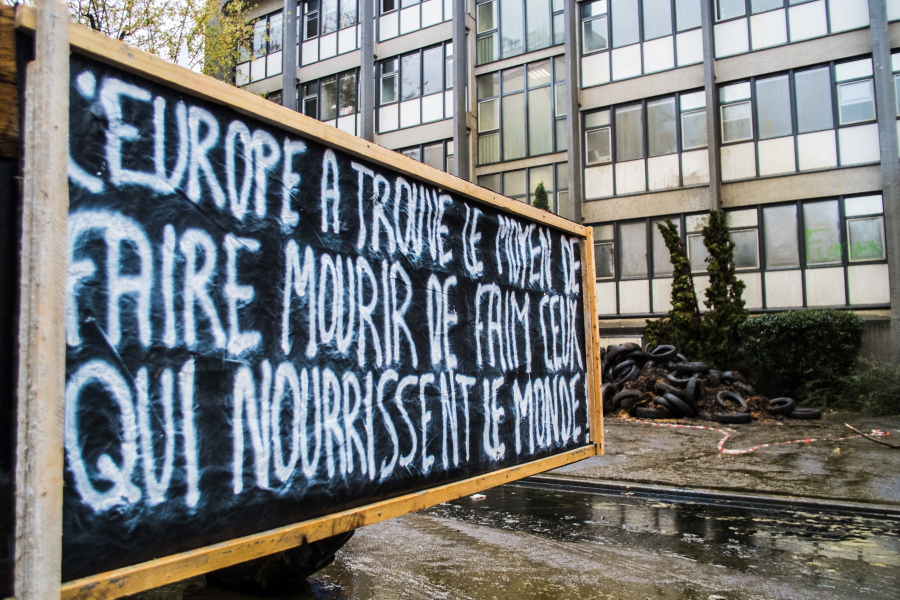 L'EUROPE A TROUVÉ LE MOYEN DE
FAIRE MOURIR DE FAIM CEUX
QUI NOURRISSENT LE MONDE